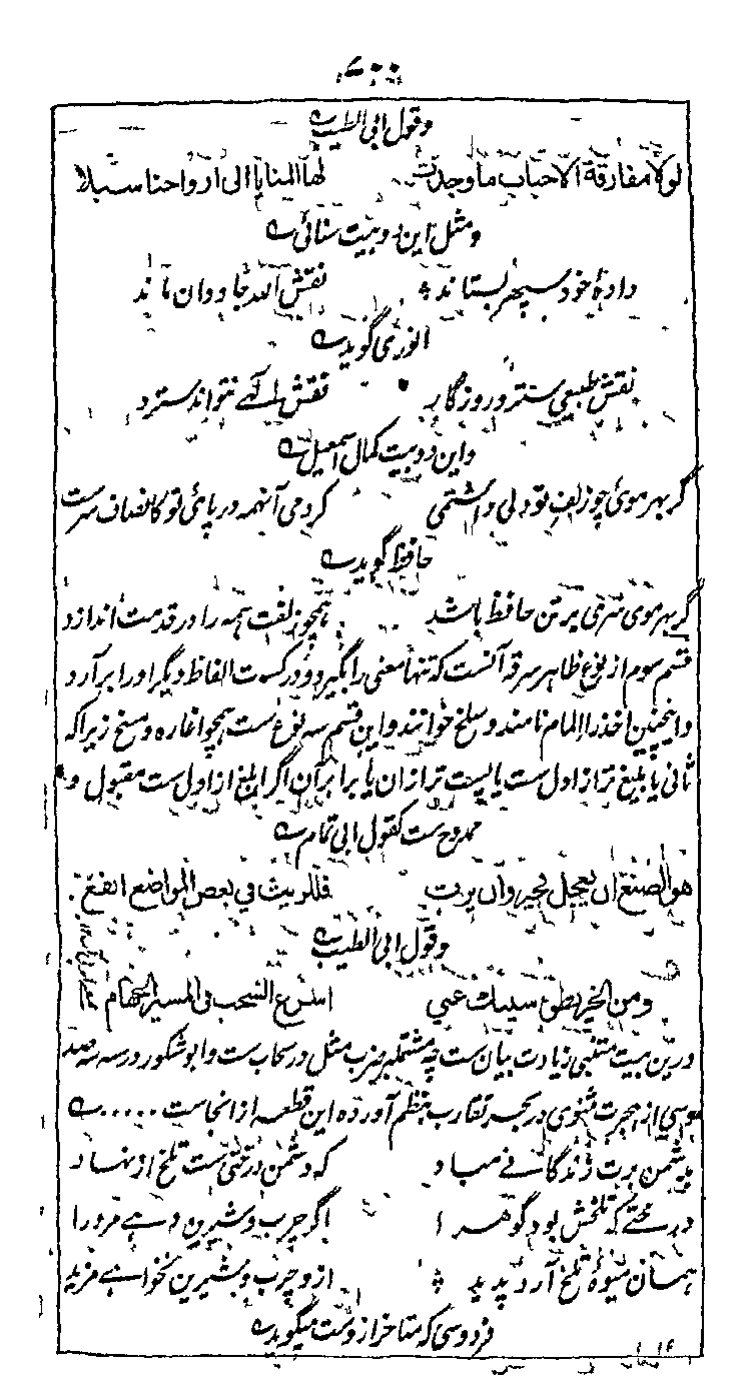 ۴۰۰
وقول ابی الطیب
لولا مفارقة الاحباب ما وجدت لها المنایا الی ارواحنا سبلا
ومثل این دو بیت سنائی
دادهٔ خود سپهر بستاند نقش الله جاودان ماند
انوری گوید
نقش طبیعی سترد روزگار نقش الٰهی نتواند سترد
واین دو بیت کمال اسمعیل
گر بهر موئ چو زلف تو دلی داشتمی کردمی آنهمه در پائ تو کانصاف سرست
حافظ گوید
گر بهر موی سری بر تن حافظ باشد همچو زلفت همه را در قدمت اندازد
قسم سوم از نوع ظاهر سرقه آنست که تنها معنی را بگیرد و در کسوت الفاظ دیگر اورا برآرد
واینچنین اخذ را المام نامند و سلخ خوانند واین قسم سه نوع ست همچو اغاره و مسخ زیراکه
ثانی یا بلیغ تر از اول ست یا پست تر ازان یا برابر آن اگر ابلغ از اول ست مقبول و
ممدوح ست کقول ابی تمام
هو الصنع ان یعجل فخیر وان یرث فللریث فی بعض المواضع انفع
وقول ابی الطیب
ومن الخیر بطؤ سیبك عنی اسرع السحب فی المسیر الجهام
درین بیت متنبی زیادت بیان ست چه مشتمل بر ضرب مثل در سحاب ست وابو شکور در سه صد
وسی از هجرت مثنوی در بحر تقارب بنظم آورده این قطعه ازانجاست
بدشمن برت زندگانی مباد که دشمن درختی ست تلخ از نهاد
درختی که تلخش بود گوهرا اگر چرب و شیرین دهی مرورا
همان میوهٔ تلخ آرد پدید ازو چرب و شیرین نخواهی مزید
فردوسی که متاخر ازوست میگوید